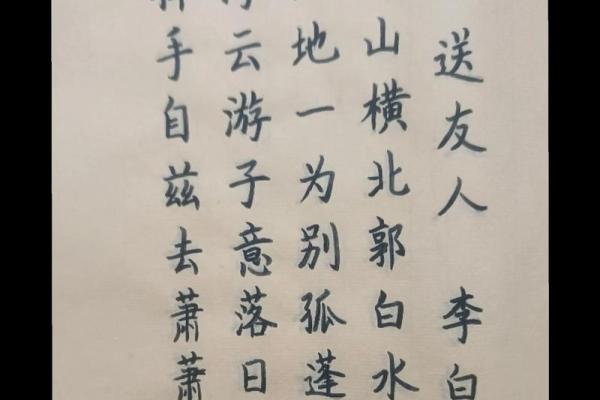 送友人 李白
山横北郭白水
地一为别孤蓬
云游子意落日
手自兹去萧萧